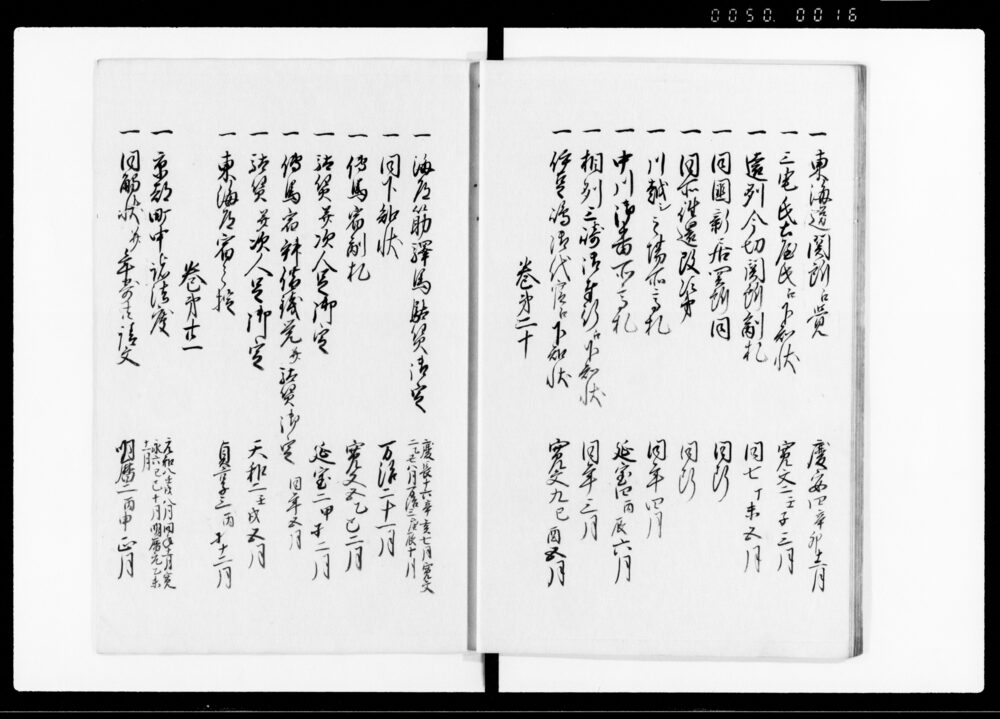 0050. 0016
一 東海道関所之覚 慶安四辛卯十二月
一 三宅氏土屋氏江下知状 寛文二壬子三月
一 遠列今切関所制札 同七丁未五月
一 同国新居関所同 同断
一 同所往還改次第 同断
一 川越之場所高札 同年四月
一 中川御番所之高札 延宝四丙辰六月
一 相列三崎 江下知状 同年三月
一 伊豆嶋御代官江下知状 寛文九己酉五月
巻第二十
一 海道筋駅馬駄賃御定 慶長十六辛亥七月寛文 十月
一 同下知状 万治二十一月
一 伝馬宿制札 寛文五乙巳二月
一 駄賃并次人足御定 延宝二甲寅二月
一 伝馬宿 駄賃御定 同年五月
一 駄賃并次人足御定 天和二壬戌五月
一 東海道宿々 貞享三丙寅十二月
巻第廿一
一 京都町中江諸法度 元和八 八月同年十一月寛永六己巳十月明暦元乙未十一月
一 同触状并年寄共請文 明暦二丙申正月